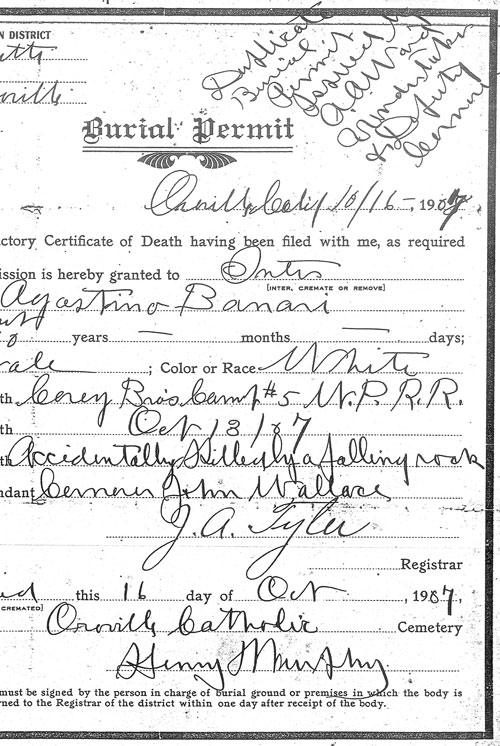 N DISTRICT
Duplicate
Burial
Permit
issued by
A.A. Ward
Undertaker
& Deputy
Coroner
Burial Permit
Oroville, Calif 10/16 - 1907
ctory Certificate of Death having been filed with me, as required
ission is hereby granted to Inter
[INTER, CREMATE OR REMOVE]
Agostino Banari
years — months — days;
ale ; Color or Race White
th Corey Bros Camp #5 W.P.R.R.
th Oct 13/07
th Accidentally Killed by a falling rock
ndant Corroner John Wallace
J. A. Tyler
Registrar
ed this 16 day of Oct , 1907,
CREMATED]
Oroville Catholic Cemetery
Henry Murphy
must be signed by the person in charge of burial ground or premises in which the body is
rned to the Registrar of the district within one day after receipt of the body.